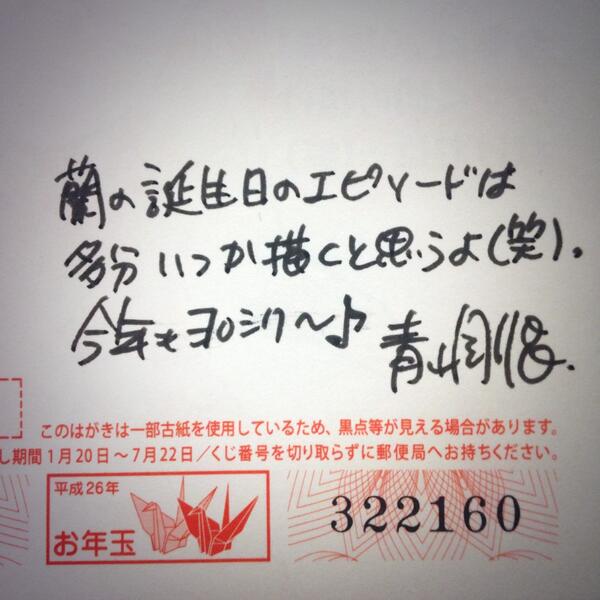 蘭の誕生日のエピソードは
多分いつか描くと思うよ(笑)。
今年もヨロシク〜♪ 青山剛昌.
このはがきは一部古紙を使用しているため、黒点等が見える場合があります。
し期間1月20日〜7月22日/くじ番号を切り取らずに郵便局へお持ちください。
平成26年
お年玉
322160